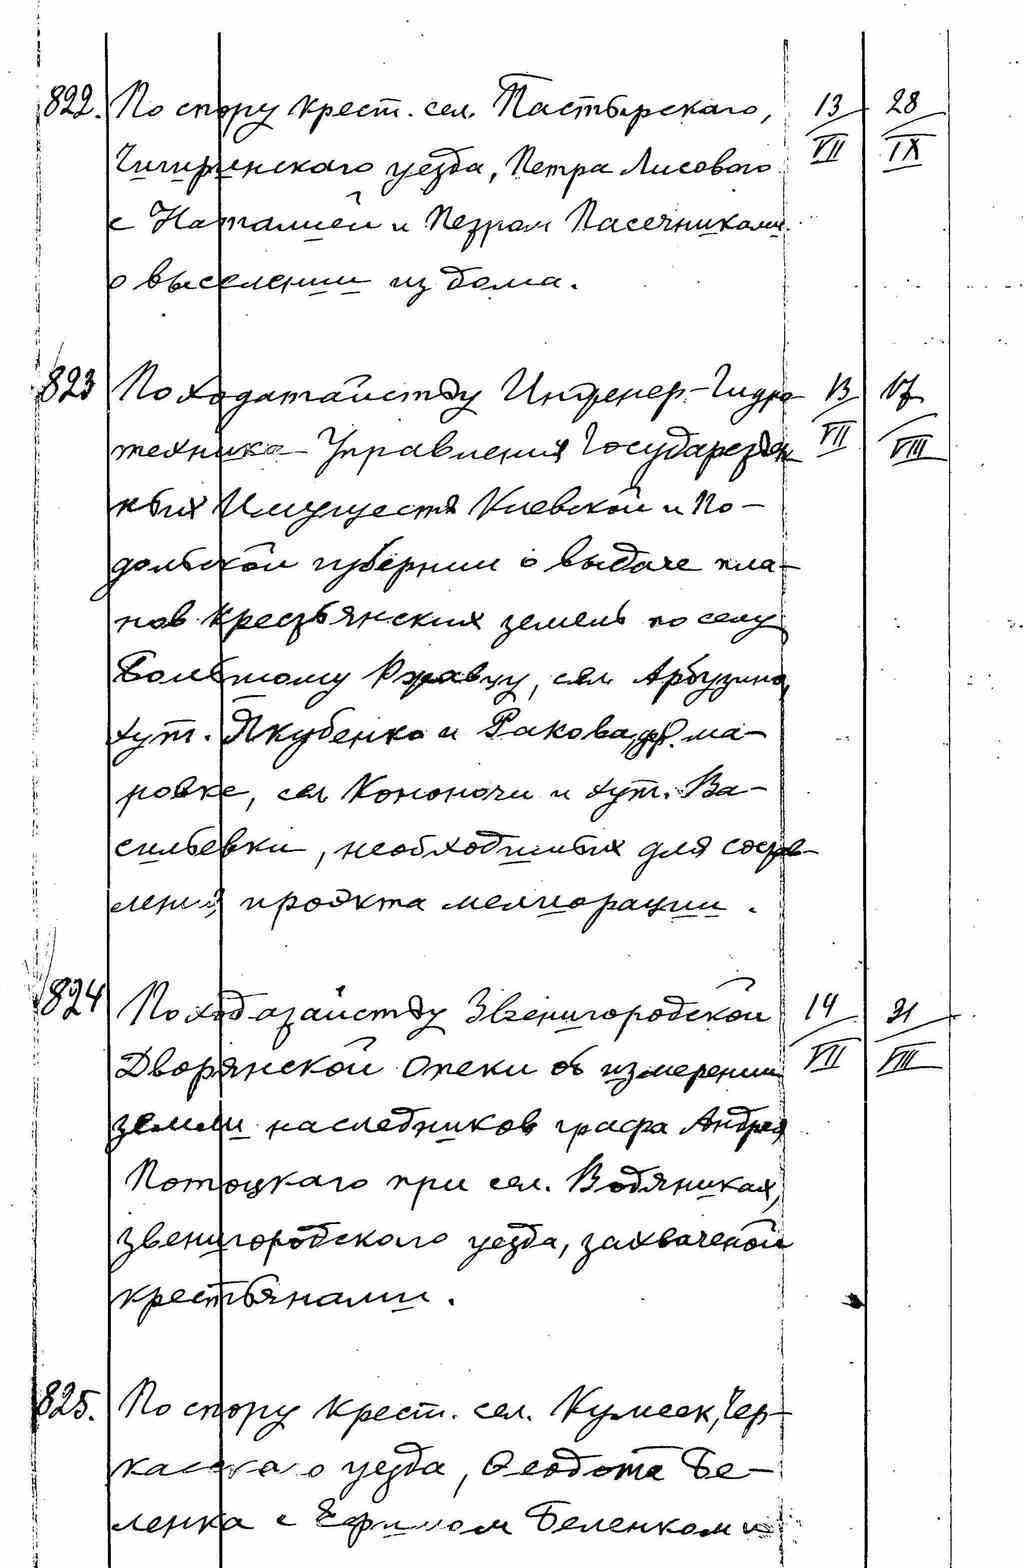 822. По спору крест. сел. Пастырскаго, 13/VII 28/IX
Чигиринскаго уезда, Петра Лисового
с Наталией и Петром Пасечниками
о выселении из дома.
823 По ходатайству Инженер-Гидро- 13/VII 17/VIII
техника Управления Государствен
ных Имуществ Киевской и По-
дольской губернии о выдаче пла-
нов крестьянских земель по селу
Большому Ржавцу, сел. Арбузино,
хут. Якубенко и Ракова, дер. Ма-
ровке, сел Конончи и хут. Ва-
сильевки, необходимых для состав-
лений проэкта мелиорации.
824 По ходатайству Звенигородской 14/VII 31/VIII
Дворянской Опеки об измерении
земли наследников графа Андрея
Потоцкаго при сел. Водяниках,
Звенигородского уезда, захваченой
крестьянами.
825. По спору крест. сел. Кумеек, Чер-
касскаго уезда, Феодота Бе-
ленка с Ефимом Беленком и